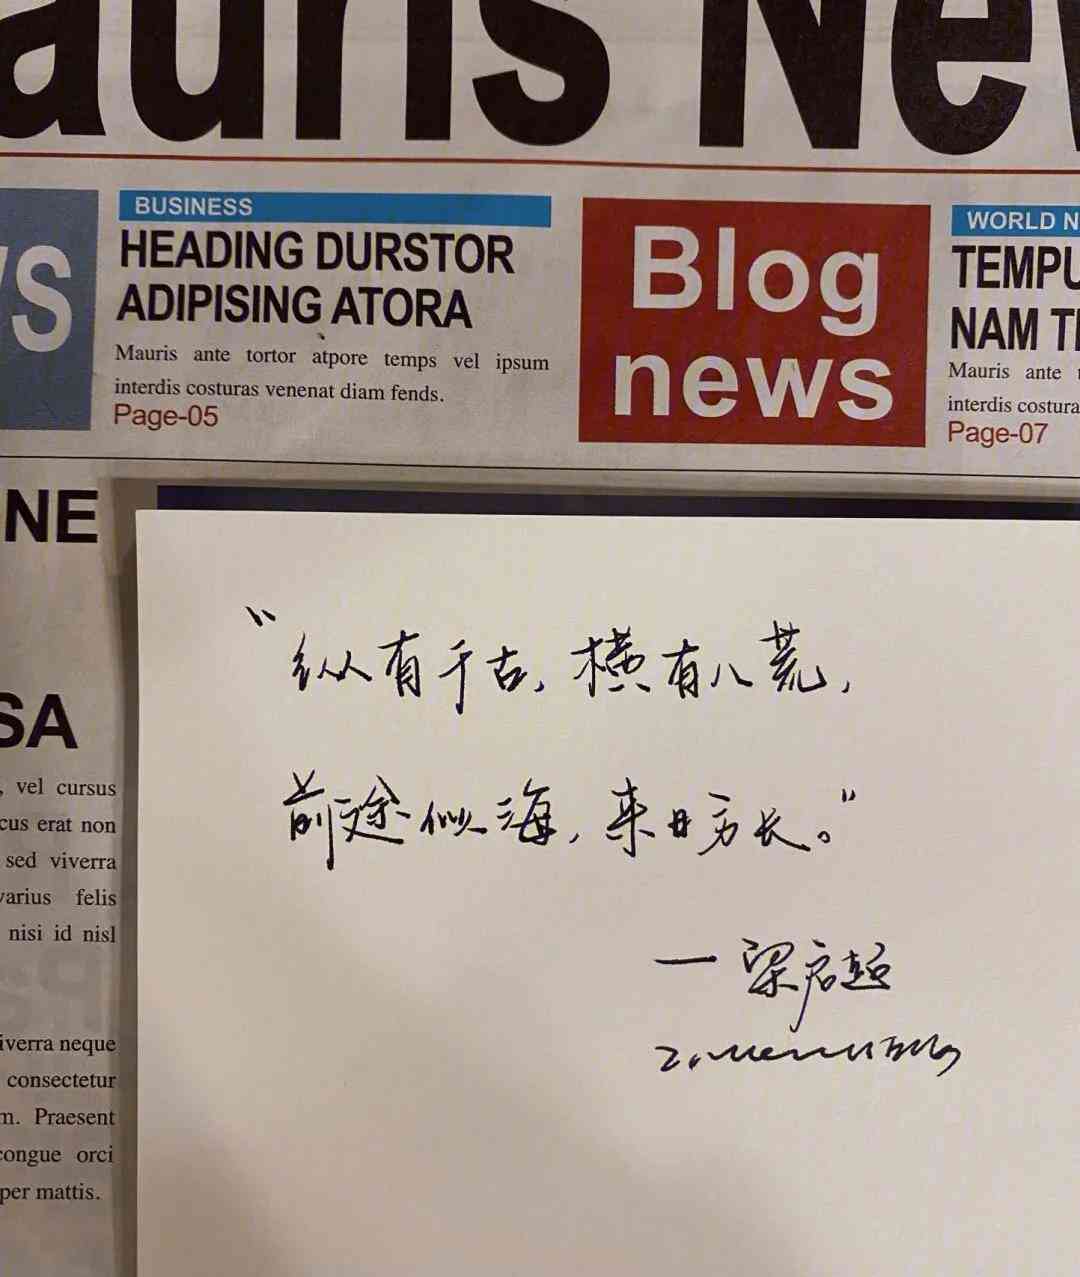 auris New
BUSINESS
HEADING DURSTOR
ADIPISING ATORA
Mauris ante tortor atpore temps vel ipsum
interdis costuras venenat diam fends.
Page-05
WS
Blog
news
WORLD N
TEMPU
NAM TE
Mauris ante
interdis costura
Page-07
NE
SA
, vel cursus
cus erat non
sed viverra
varius felis
nisi id nisl
iverra neque
consectetur
m. Praesent
congue orci
per mattis.
“纵有千古，横有八荒，
前途似海，来日方长。”
—梁启超